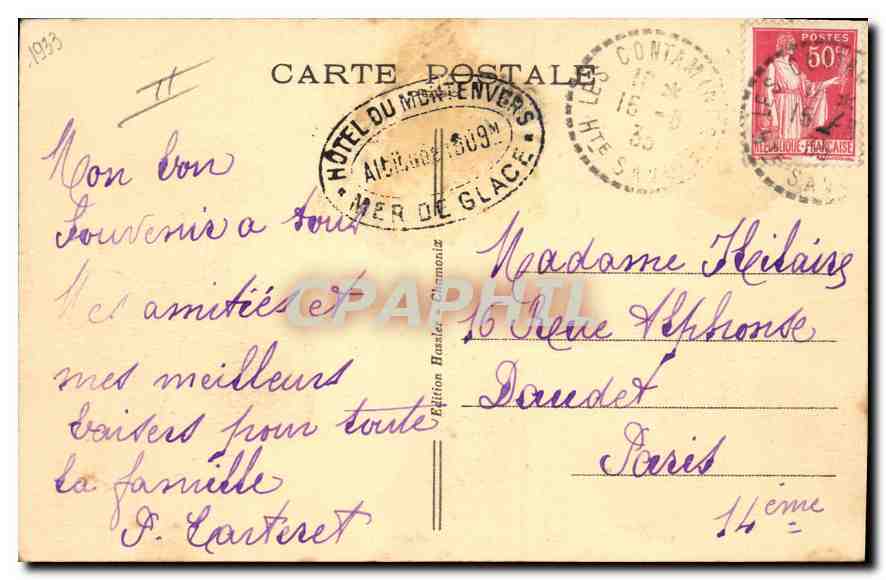 1933
CARTE POSTALE
HÔTEL DU MONTENVERS
MER DE GLACE
LES CONTAMIN
15 -8
33
HTE SAV
POSTES
50c
RÉPUBLIQUE-FRANÇAISE
Mon bon
Souvenir a tous
Mes amitiés et
mes meilleurs
baisers pour toute
la famille
P. Carteret
Edition Hassler - Chamonix
Madame Hilaire
16 Rue Alphonse
Daudet
Paris
14ème
CPAPHIL